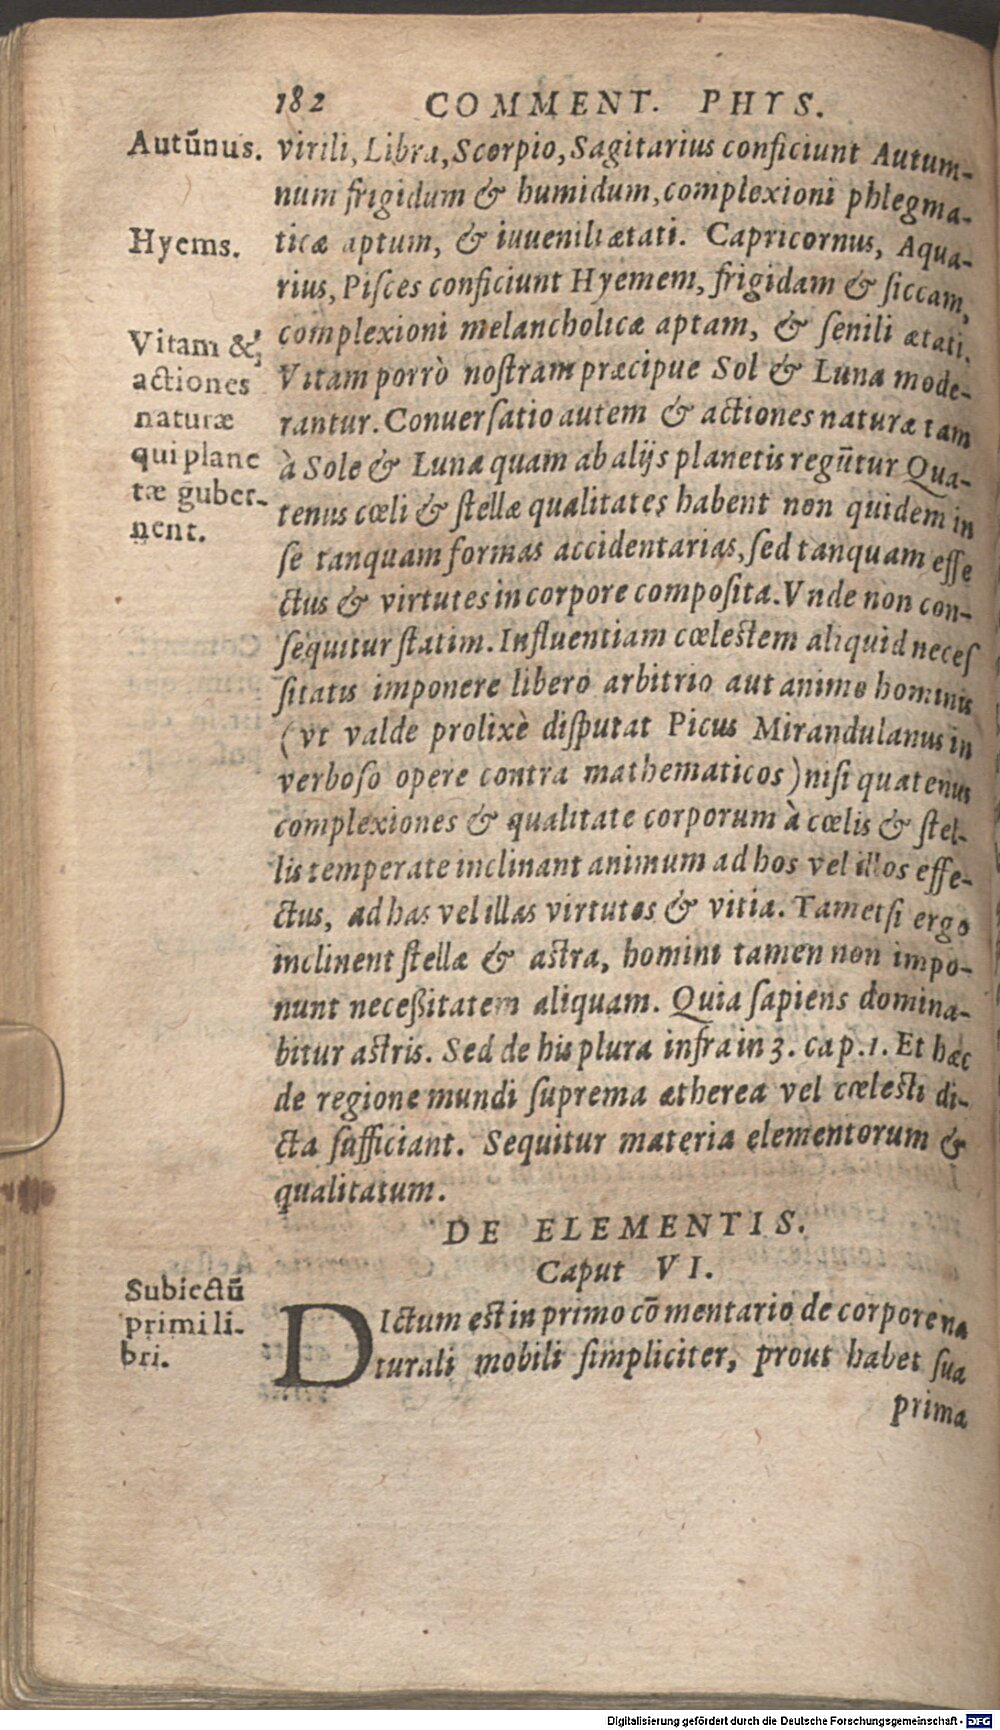 182 COMMENT. PHYS.
Autũnus.
virili, Libra, Scorpio, Sagitarius conficiunt Autum-
num frigidum & humidum, complexioni phlegma-
Hyems.
ticæ aptum, & iuuenili ætati. Capricornus, Aqua-
rius, Piſces conficiunt Hyemem, frigidam & ſiccam,
complexioni melancholicæ aptam, & ſenili ætati.
Vitam &
actiones
naturæ
qui plane
tæ guber-
nent.
Vitam porrò noſtram præcipue Sol & Luna mode-
rantur. Conuerſatio autem & actiones naturæ tam
à Sole & Luna quam ab alijs planetis regũtur Qua-
tenus cœli & ſtellæ qualitates habent non quidem in
ſe tanquam formas accidentarias, ſed tanquam effe
ctus & virtutes in corpore compoſita. Vnde non con-
ſequitur ſtatim. Influentiam cœlestem aliquid neceſ
ſitatis imponere libero arbitrio aut animo hominis
(vt valde prolixè diſputat Picus Mirandulanus in
verboſo opere contra mathematicos) niſi quatenus
complexiones & qualitate corporum à cœlis & ſtel-
lis temperate inclinant animum ad hos vel illos effe-
ctus, ad has vel illas virtutes & vitia. Tametſi ergo
inclinent ſtellæ & astra, homini tamen non impo-
nunt neceßitatem aliquam. Quia ſapiens domina-
bitur astris. Sed de his plura infra in 3. cap. 1. Et hæc
de regione mundi ſuprema ætherea vel cœlesti di-
cta ſufficiant. Sequitur materia elementorum &
qualitatum.
DE ELEMENTIS.
Caput VI.
Subiectũ
primi li-
bri.
DIctum est in primo cõmentario de corpore na
turali mobili ſimpliciter, prout habet ſua
prima
Digitalisierung gefördert durch die Deutsche Forschungsgemeinschaft - DFG